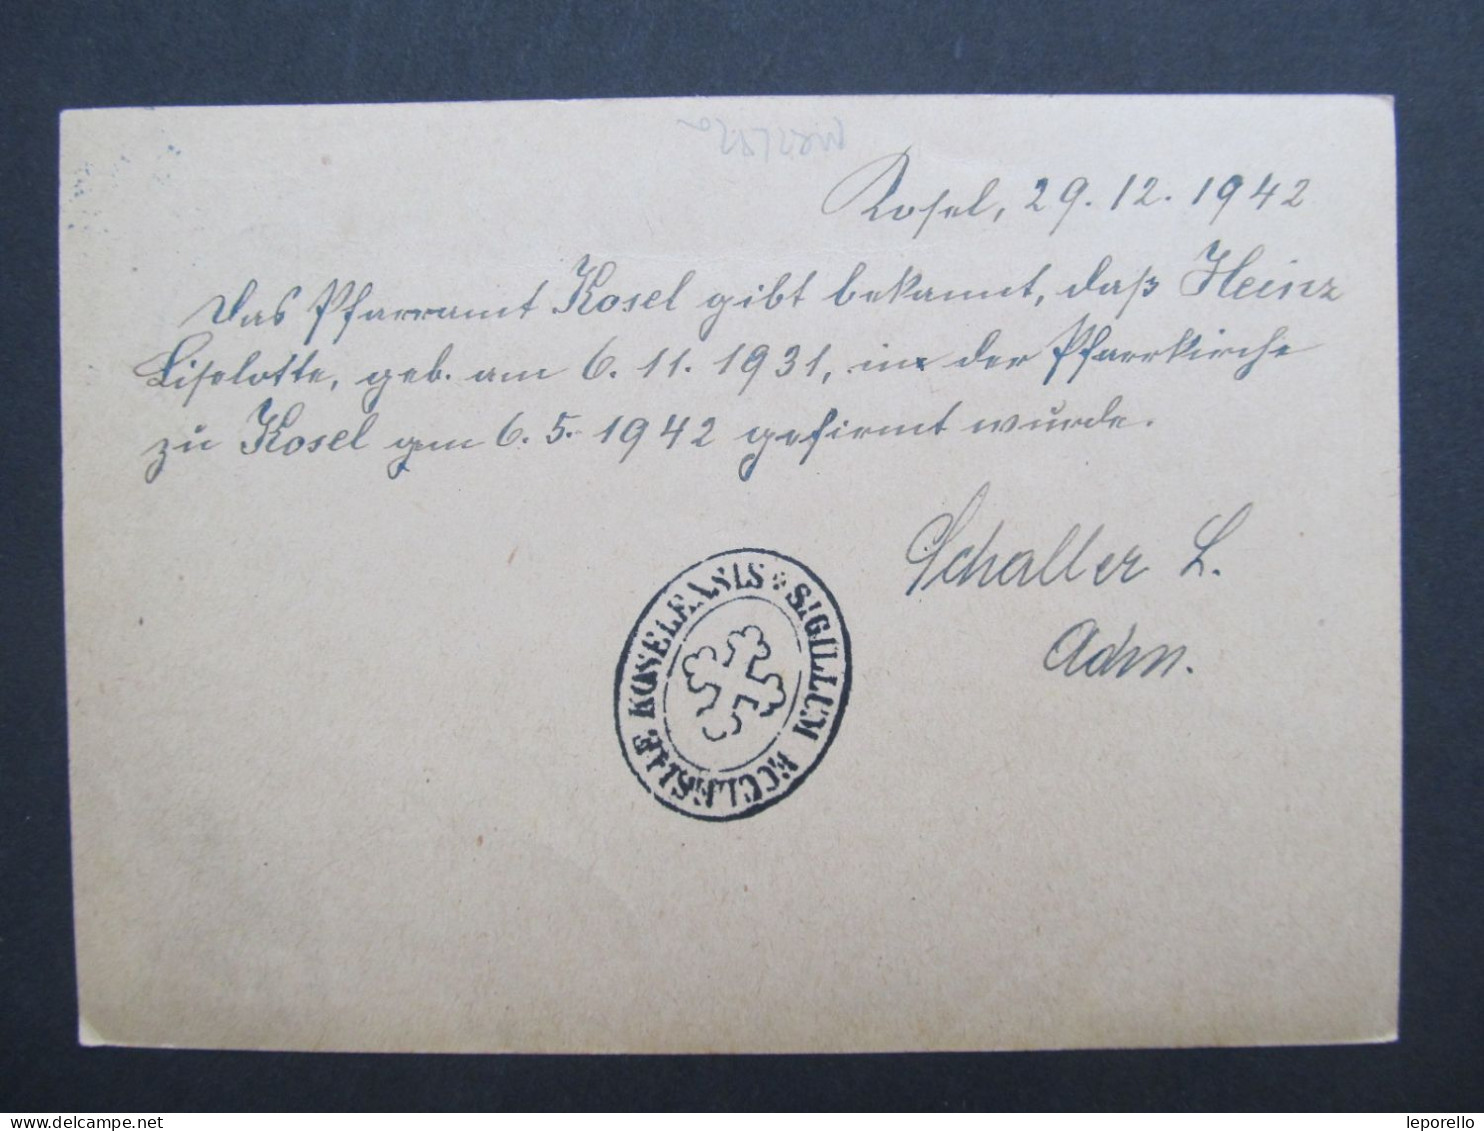 Kosel, 29. 12. 1942
Das Pfarramt Kosel gibt bekannt, daß Heinz
Liselotte, geb. am 6. 11. 1931, in der Pfarrkirche
zu Kosel am 6. 5. 1942 gefirmt wurde.
Schaller L.
Adm.
SIGILLUM ECCLESIAE KOSELENSIS
www.delcampe.net
leporello